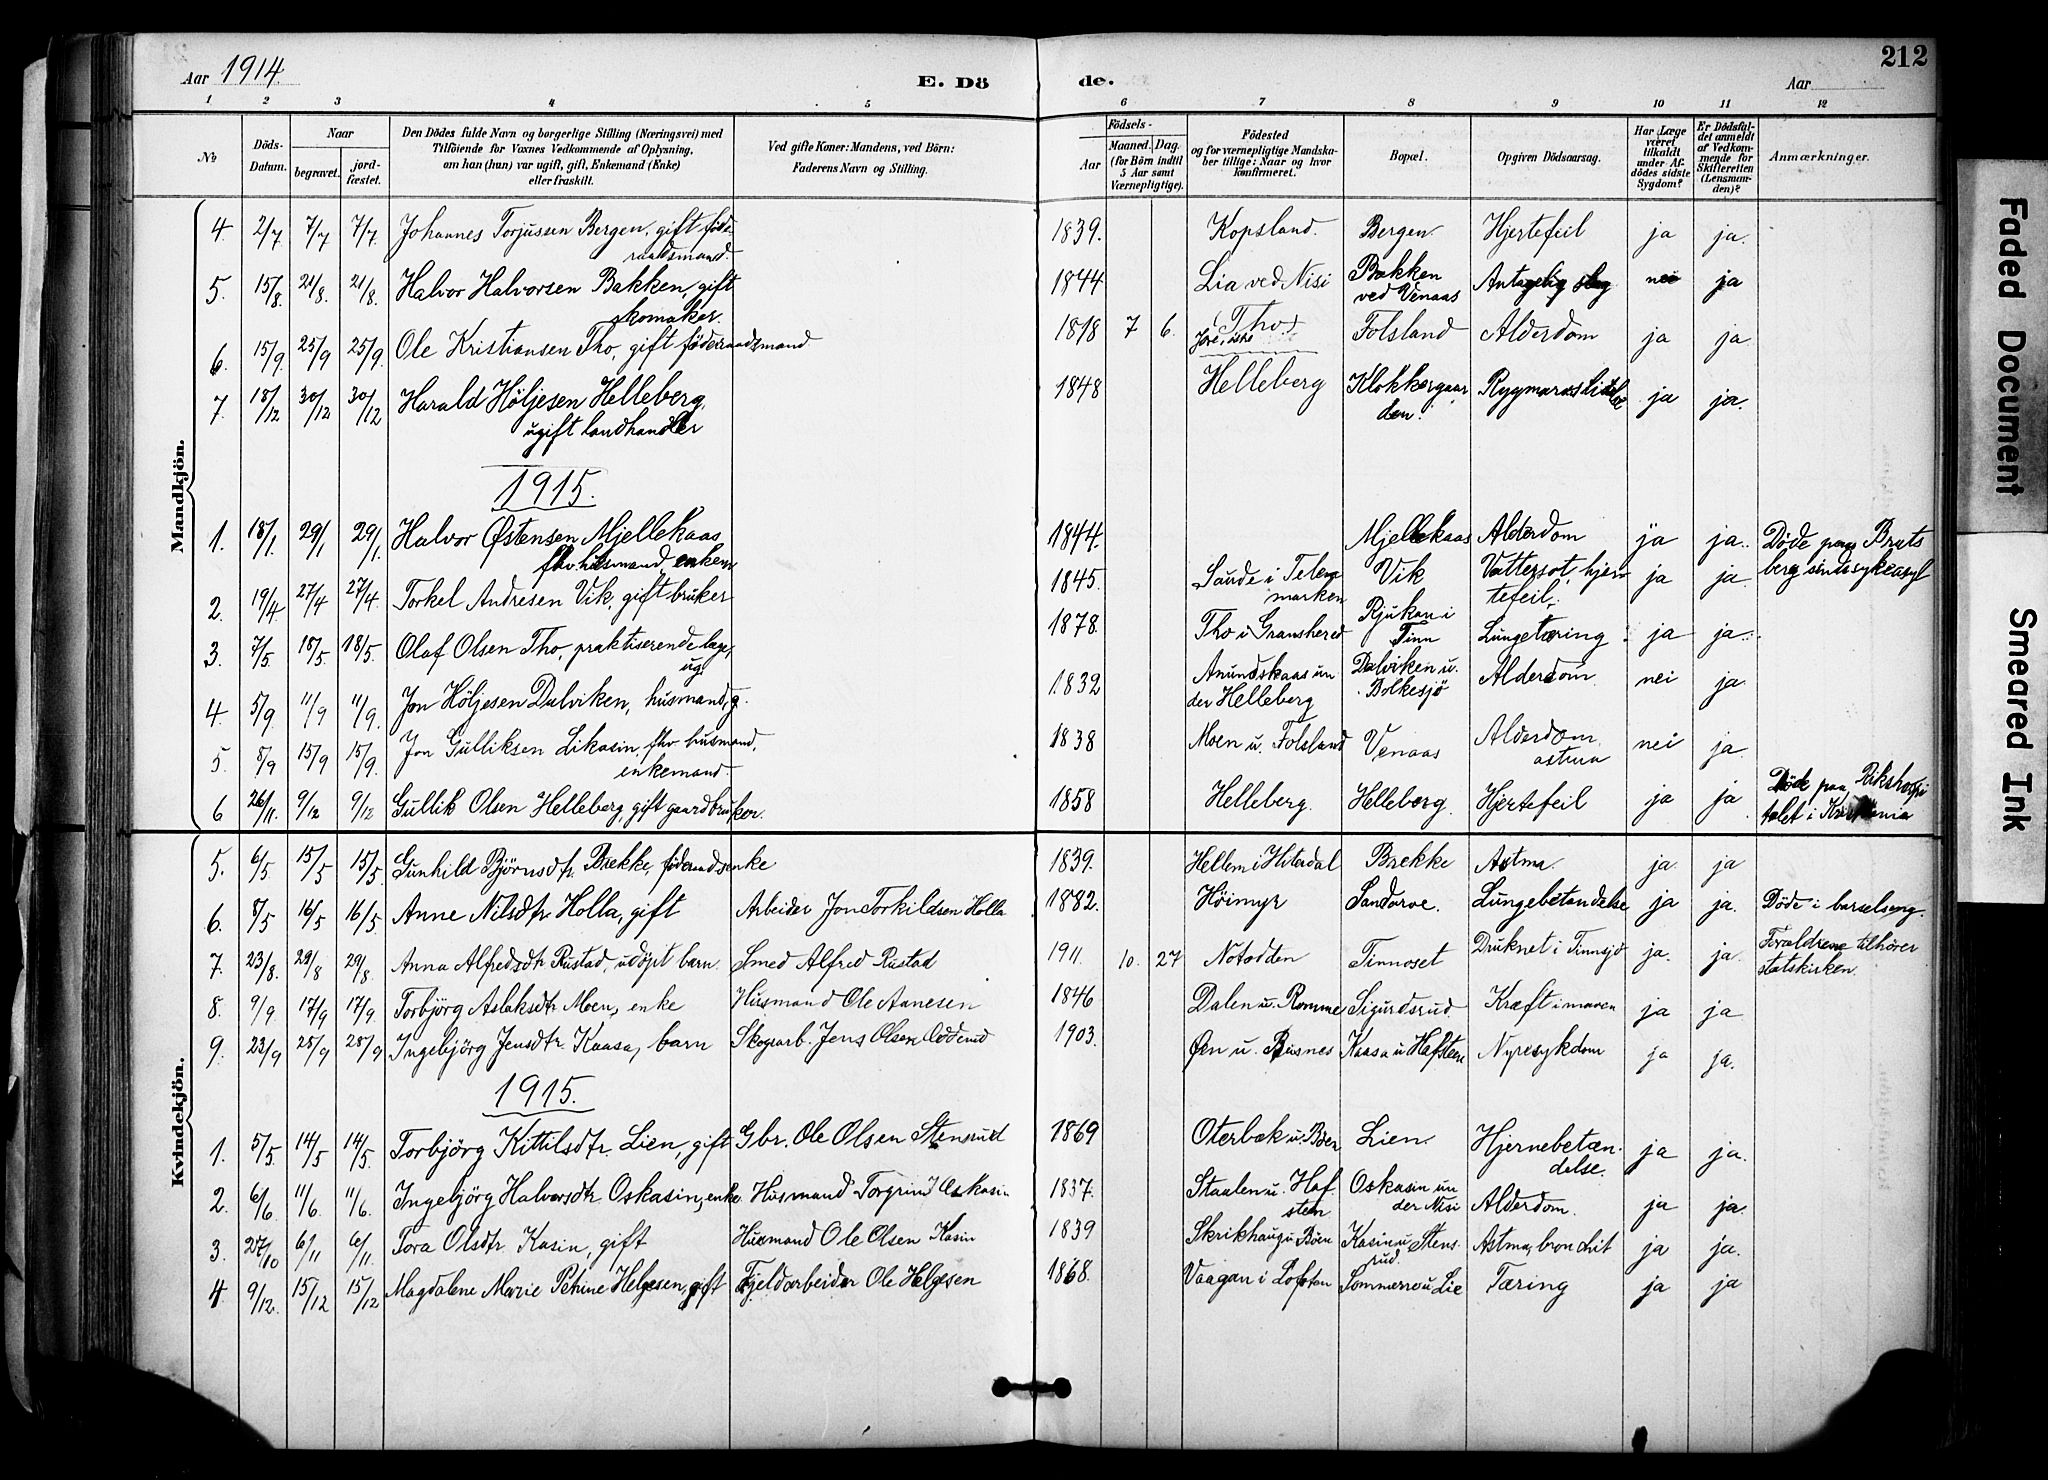 212
Aar 1914.
E. Dö
de.
Aar
1 2 3 4 5 6 7 8 9 10 11 12
No
Döds-Datum.
Naar
begravet.
jord-fæstet.
Den Dödes fulde Navn og borgerlige Stilling (Næringsvei) med
Tilföiende for Voxnes Vedkommende af Oplysning,
om han (hun) var ugift, gift, Enkemand (Enke)
eller fraskilt.
Ved gifte Koner: Mandens, ved Börn:
Faderens Navn og Stilling.
Födsels-
Aar
Maaned. Dag.
(for Börn indtil
5 Aar samt
Værnepligtige).
Födested
og for værnepligtige Mandska-
ber tillige: Naar og hvor
konfirmeret.
Bopæl.
Opgiven Dödsaarsag.
Har Læge
været
tilkaldt
under Af-
dödes sidste
Sygdom?
Er Dödsfal-
det anmeldt
af Vedkom-
mende for
Skifteretten
(Lensman-
den)?
Anmærkninger.
Mandkjön.
4. 2/7 7/7 7/7. Johannes Torjussen Bergen, gift föde- 1839. Kopsland. Bergen. Hjertefeil ja ja.
raadsmand.
5. 15/8. 21/8. 21/8. Halvor Halvorsen Bakken, gift 1844 Lia ved Nisi Bakken ved Venaas Antagelig slag nei ja
skomaker.
6. 15/9. 25/9 25/9. Ole Kristiansen Tho, gift föderaadsmand 1818 7 6. Tho Folsland Alderdom ja ja.
7. 18/12 30/12 30/12 Harald Höljesen Helleberg, 1848 Helleberg Klokkergaarden. Rygmarvslidelse ja ja.
ugift landhandler
1915.
1. 18/1. 29/1 29/1. Halvor Østensen Mjellekaas 1844. Mjellekaas Alderdom ja ja. Döde paa Brats
fhv. husmand, enkem berg sindssykeasyl
2. 19/4. 27/4 27/4. Torkel Andresen Vik, gift bruker 1845. Saude i Telemarken Vik Vattersot, hjertefeil. ja ja.
3. 7/5. 18/5. 18/5. Olaf Olsen Tho, praktiserende læge, 1878. Tho i Gransherred Rjukan i Tinn Lungetæring ja ja.
ug.
4. 5/9. 11/9 11/9. Jon Höljesen Dalviken, husmand, g. 1832 Anundskaas under Helleberg Dalviken u. Bolkesjö Alderdom nei ja.
5. 8/9 15/9 15/9. Jon Gulliksen Likasin, fhv. husmand, 1838 Moen u. Folsland Venaas Alderdom, astma nei ja.
enkemand.
6 26/11. 9/12 9/12 Gullik Olsen Helleberg, gift gaardbruker. 1858 Helleberg. Helleberg. Hjertefeil ja ja Döde paa Rikshospi
talet i Kristiania
Kvindekjön.
5. 6/5 15/5 15/5. Gunhild Björnsdtr. Brekke, föderaadsenke 1839. Hellem i Hiterdal Brekke Astma. ja. ja
6. 8/5 16/5 16/5. Anne Nilsdtr Holla, gift Arbeider Jon Torkildsen Holla 1882. Höimyr Sandarve. Lungebetændelse ja ja. Döde i barselseng.
7. 23/8. 29/8 29/8. Anna Alfredsdtr Rustad, udöpt barn. Smed Alfred Rustad 1911. 10. 27 Notodden Tinnoset Druknet i Tinnsjö ja. ja. Forældrene tilhörer
statskirken.
8. 9/9. 17/9 17/9. Torbjörg Aslaksdtr Moen, enke Husmand Ole Annesen 1846 Dalen u. Romme Sigurdsrud. Kræft i maven ja ja.
9. 23/9 28/9 28/9 Ingebjörg Jensdtr. Kaasa, barn Skogsarb. Jens Olsen Odderud 1903. Øen u. Busnes Kaasa u Hafsten Nyresykdom ja ja.
1915.
1. 5/5. 14/5 14/5. Torbjörg Kittilsdtr. Lien, gift Gbr. Ole Olsen Stensrud 1869 Oterbæk u. Böen Lien. Hjernebetændelse. ja ja.
2. 6/6 11/6. 11/6. Ingebjörg Halvorsdtr Oskasin, enke Husmand Torgrim Oskasin 1837. Staalen u. Hafsten Oskasin under Nisi Alderdom. ja ja.
3. 27/10 6/11 6/11. Tora Olsdtr Kasin, gift Husmand Ole Olsen Kasin 1839 Skrikhaug u Böen Kasin u. Stensrud. Astma, bronchit ja ja.
4 9/12. 15/12 15/12 Magdalene Marie Petrine Helgesen, gift Fjeldarbeider Ole Helgesen 1868. Vaagan i Lofoten Sommerro u Lie Tæring ja ja
Faded Document
Smeared Ink